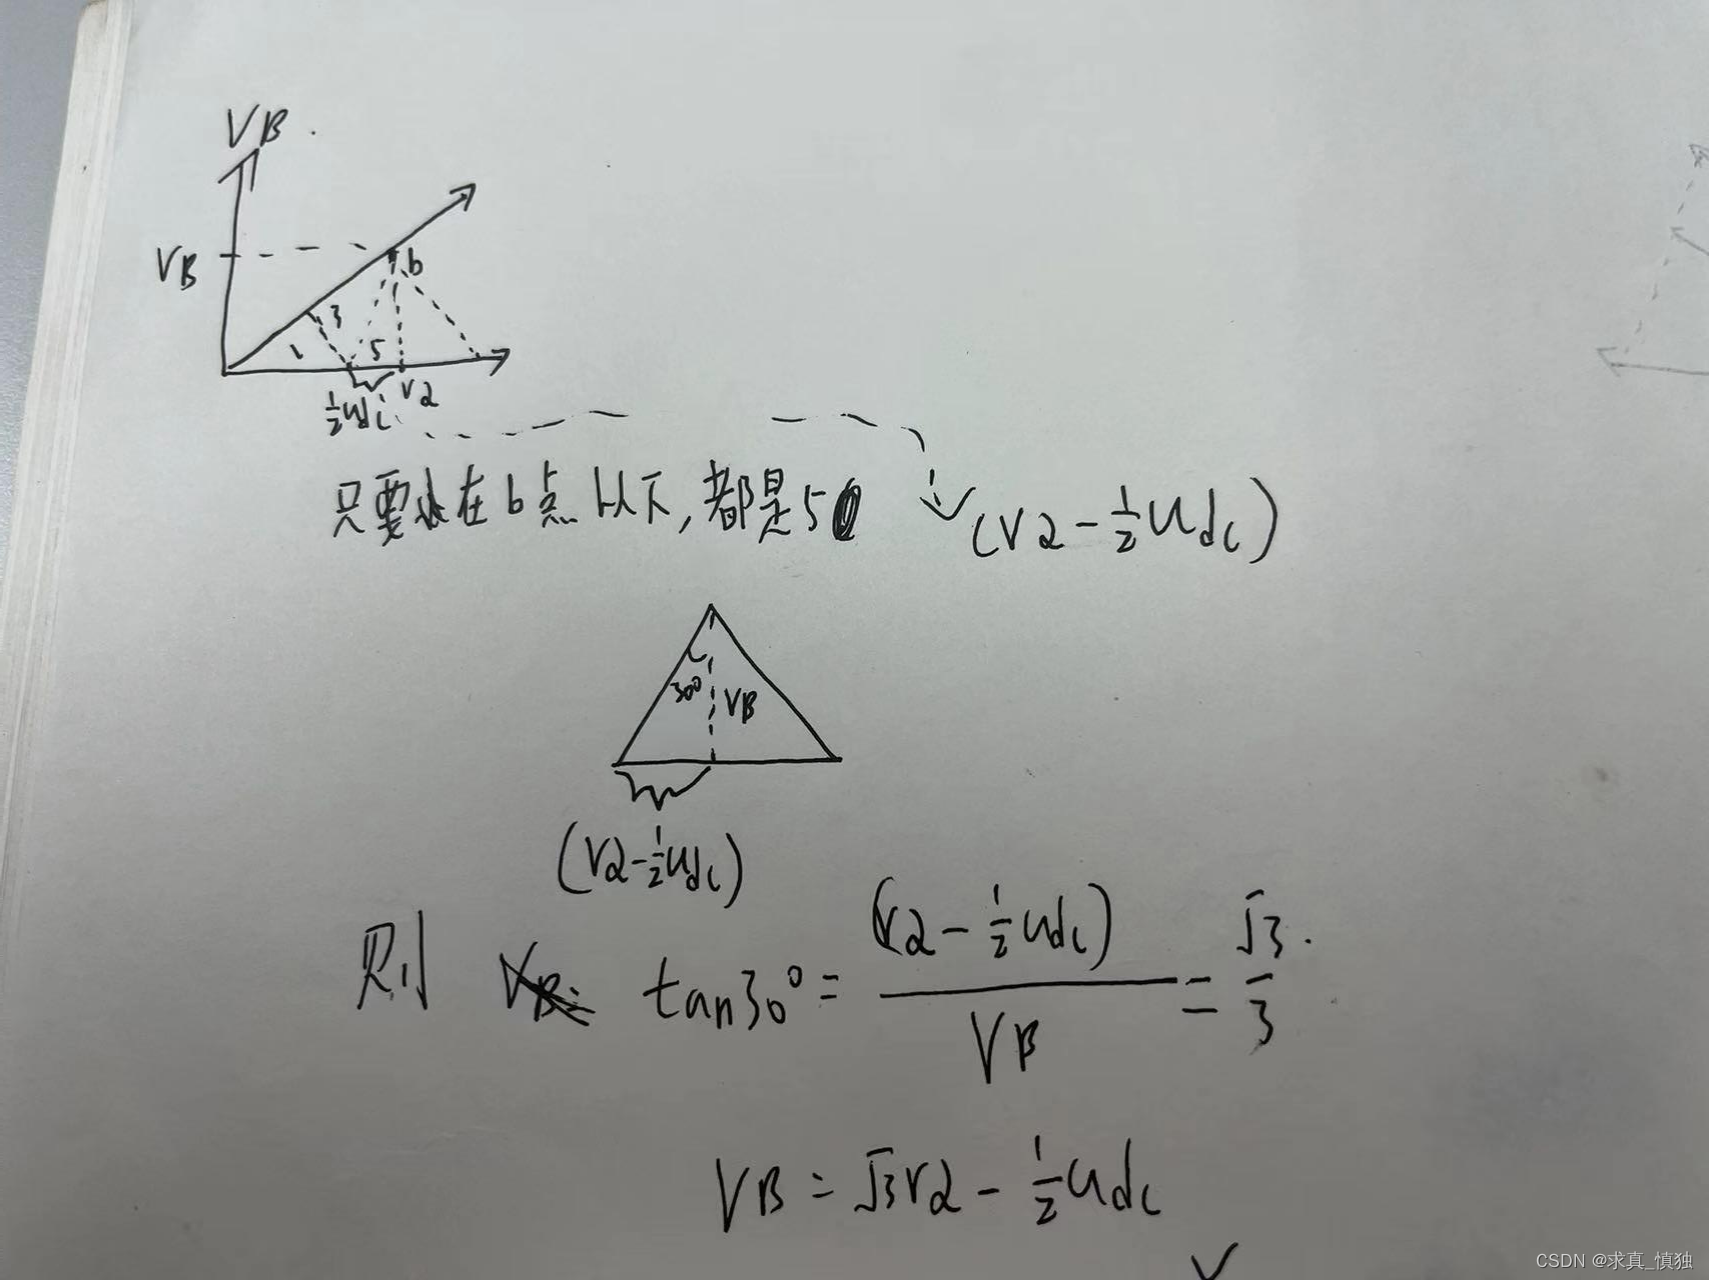 VB.
VB
b
3
1
5
½Udc
Vα
只要在b点以下,都是5
(Vα-½Udc)
30°
VB
(Vα-½Udc)
则 tan30°=(Vα-½Udc)/VB=√3/3.
VB=√3Vα-½Udc
CSDN @求真_慎独